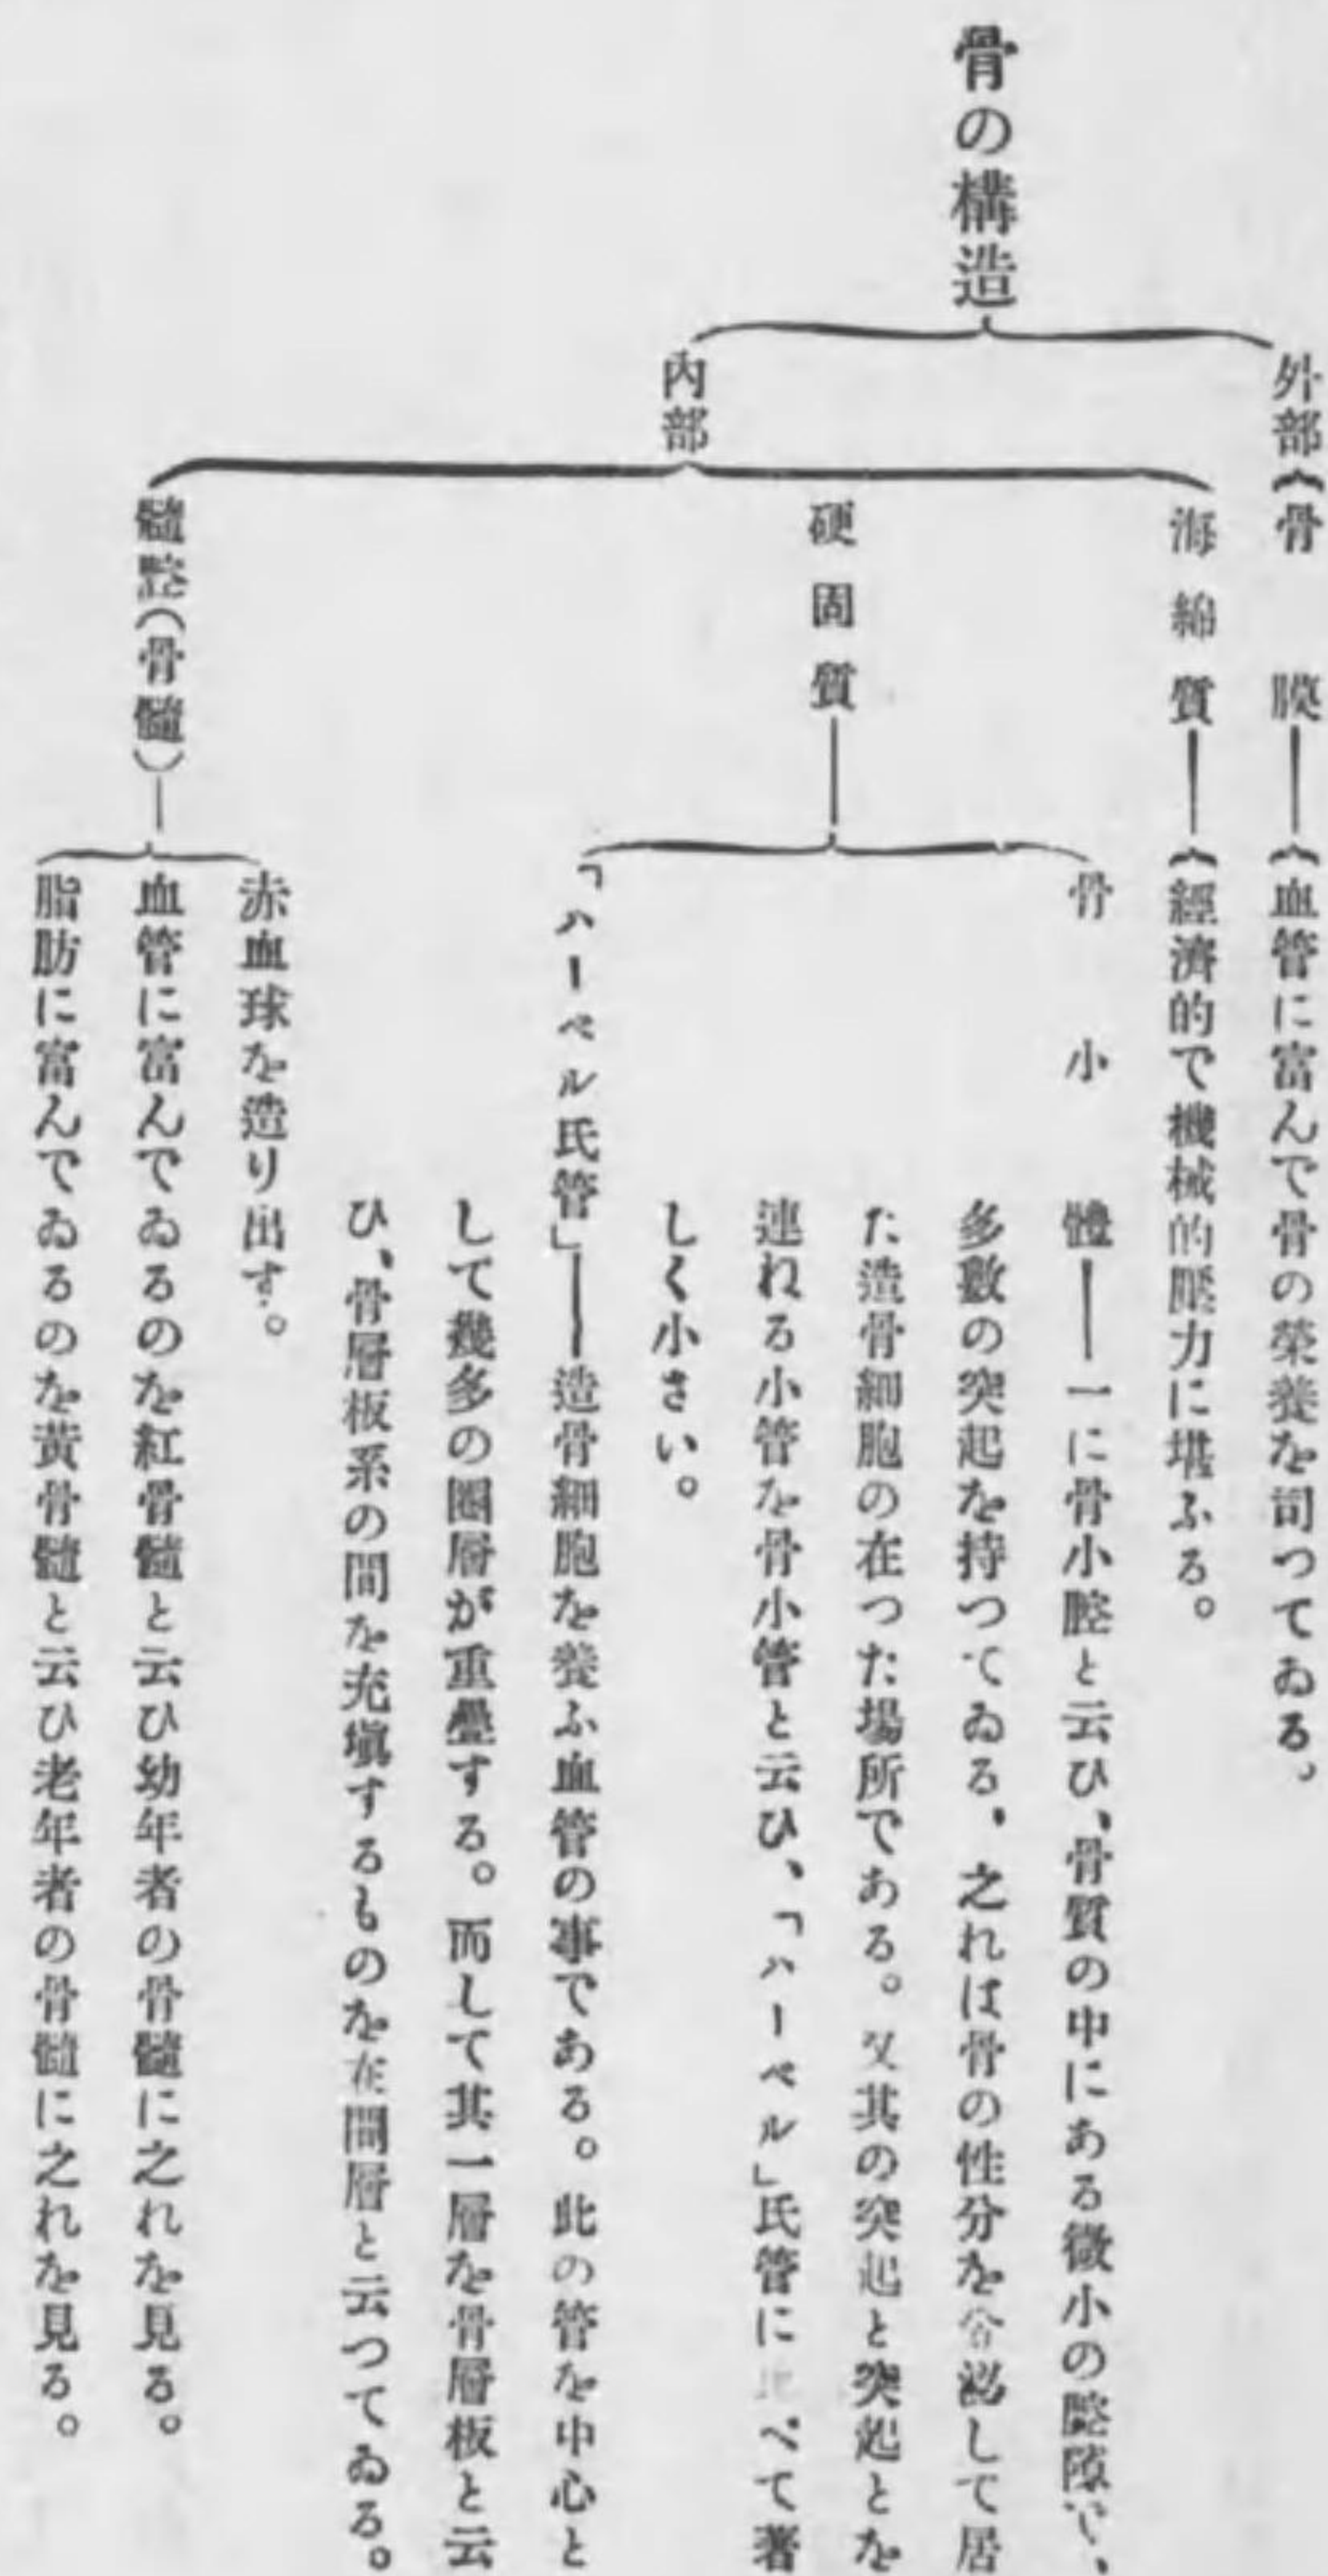 骨の構造
外部
骨膜──血管に富んで骨の榮養を司つてゐる。
內部
海綿質──經濟的で機械的壓力に堪ふる。
硬固質──
骨小體──一に骨小腔と云ひ、骨質の中にある微小の腔隙で、
多數の突起を持つてゐる、之れは骨の性分を分泌して居
た造骨細胞の在つた場所である。又其の突起と突起とを
連ねる小管を骨小管と云ひ、「ハーベル」氏管に比べて著
しく小さい。
「ハーベル氏管」──造骨細胞を養ふ血管の事である。此の管を中心と
して幾多の圈層が重疊する。而して其一層を骨層板と云
ひ、骨層板系の間を充塡するものを在間層と云つてゐる。
髓腔(骨髓)──
赤血球を造り出す。
血管に富んでゐるのを紅骨髓と云ひ幼年者の骨髓に之れを見る。
脂肪に富んでゐるのを黃骨髓と云ひ老年者の骨髓に之れを見る。